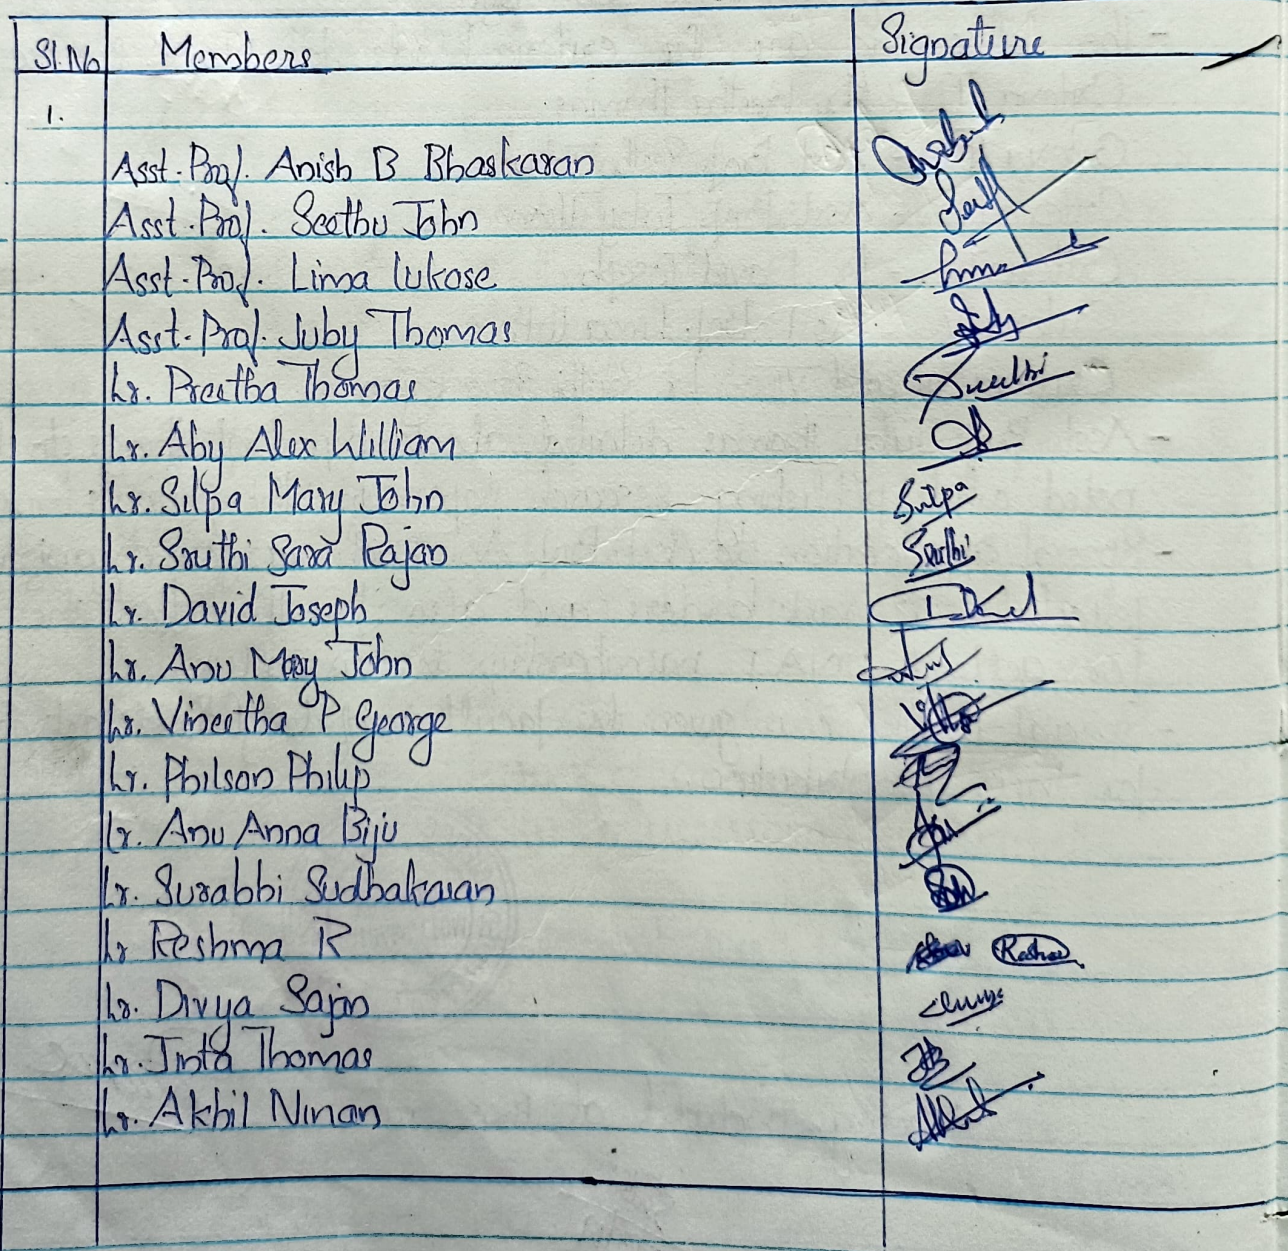 Sl.No Members Signature
1.
Asst.Prof. Anish B Bhaskaran
Asst.Prof. Seethu John
Asst.Prof. Lima Lukose
Asst.Prof. Juby Thomas
Lr. Preetha Thomas
Lr. Aby Alex William
Lr. Silpa Mary John Silpa
Lr. Sruthi Sara Rajan Sruthi
Lr. David Joseph
Lr. Anu Mary John
Lr. Vineetha P George
Lr. Philson Philip
Lr. Anu Anna Biju
Lr. Surabhi Sudhakaran
Lr Reshma R
Lr. Divya Sajan
Lr. Jinta Thomas
Lr. Akhil Ninan